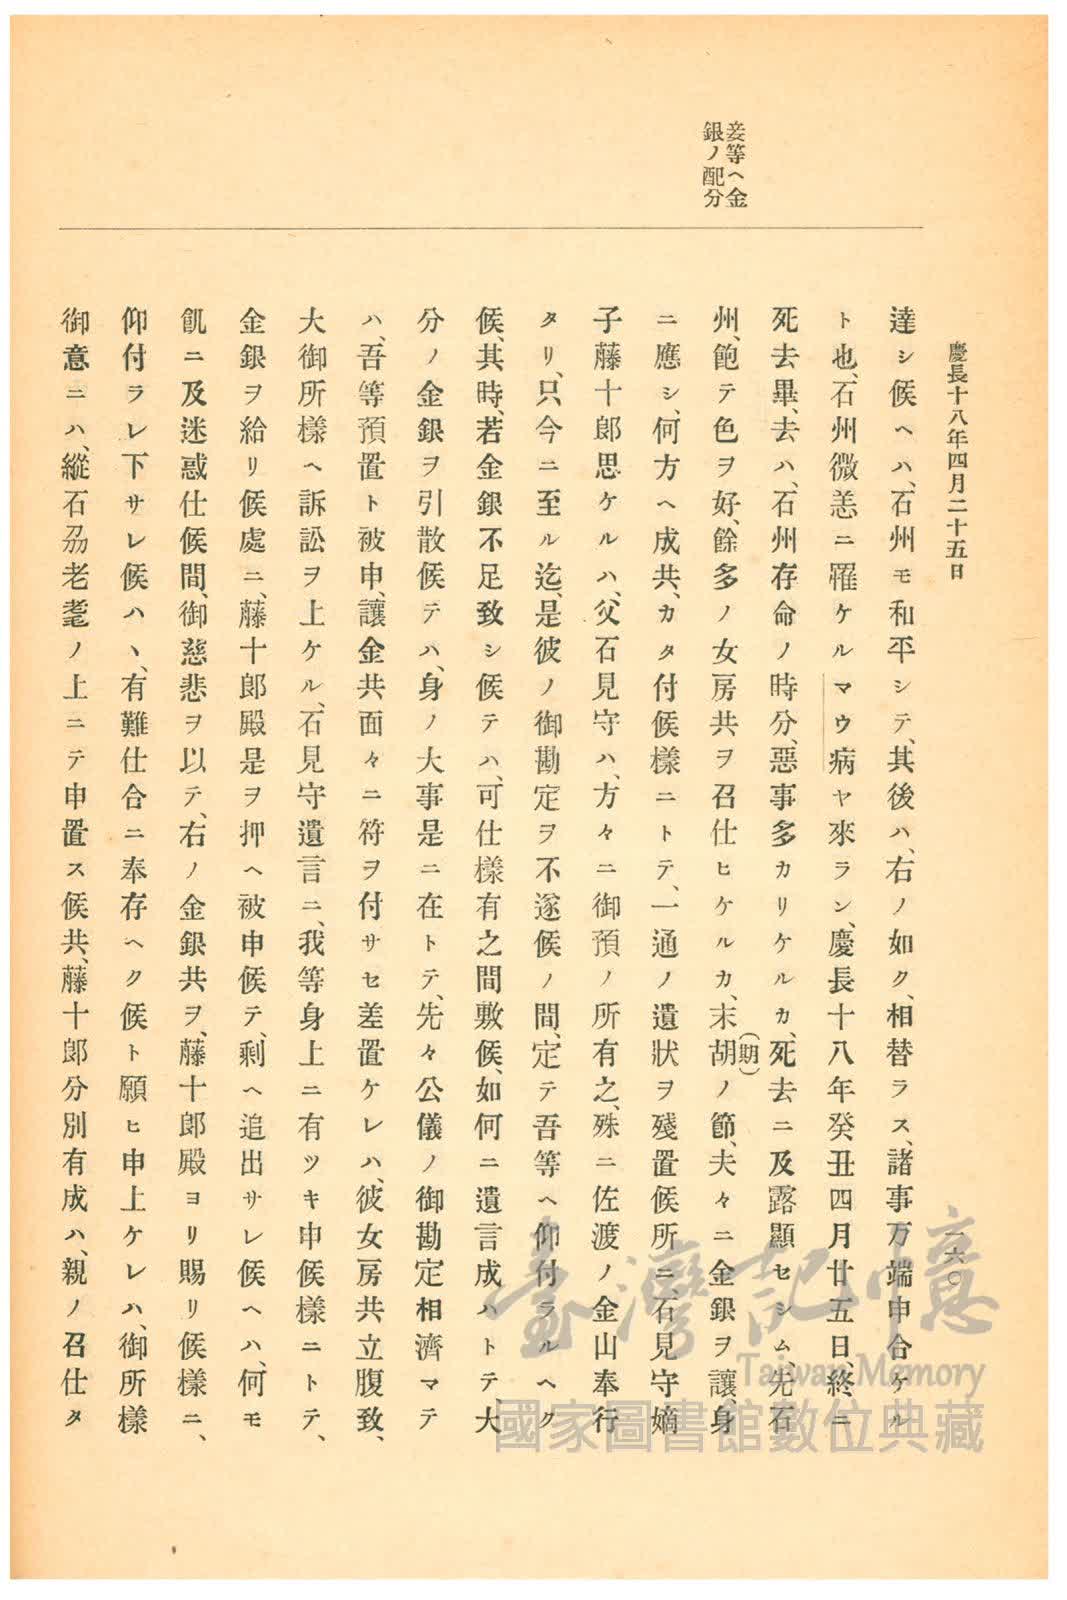 慶長十八年四月二十五日
一六〇
妾等ヘ金
銀ノ配分
達シ候ヘハ、石州モ和平シテ、其後ハ、右ノ如ク、相替ラス、諸事万端申合ケル
ト也、石州微恙ニ罹ケルマウ病ヤ來ラン、慶長十八年癸丑四月廿五日、終ニ
死去畢、去ハ、石州存命ノ時分、惡事多カリケルカ、死去ニ及露顯セシム、先石
州、飽テ色ヲ好、餘多ノ女房共ヲ召仕ヒケルカ、末胡(期)ノ節、夫々ニ金銀ヲ讓、身
ニ應シ、何方ヘ成共、カタ付候樣ニトテ、一通ノ遺狀ヲ殘置候所ニ、石見守嫡
子藤十郎思ケルハ、父石見守ハ、方々ニ御預ノ所有之、殊ニ佐渡ノ金山奉行
タリ、只今ニ至ル迄、是彼ノ御勘定ヲ不遂候ノ間、定テ吾等ヘ仰付ラルヘク
候、其時、若金銀不足致シ候テハ、可仕樣有之間敷候、如何ニ遺言成ハトテ、大
分ノ金銀ヲ引散候テハ、身ノ大事是ニ在トテ、先々公儀ノ御勘定相濟マテ
ハ、吾等預置ト被申、讓金共面々ニ符ヲ付サセ差置ケレハ、彼女房共立腹致、
大御所樣ヘ訴訟ヲ上ケル、石見守遺言ニ、我等身上ニ有ツキ申候樣ニトテ、
金銀ヲ給リ候處ニ、藤十郎殿是ヲ押ヘ被申候テ、剩ヘ追出サレ候ヘハ、何モ
飢ニ及迷惑仕候間、御慈悲ヲ以テ、右ノ金銀共ヲ、藤十郎殿ヨリ賜リ候樣ニ、
仰付ラレ下サレ候ハヽ、有難仕合ニ奉存ヘク候ト願ヒ申上ケレハ、御所樣
御意ニハ、縱石刕老耄ノ上ニテ申置ス候共、藤十郎分別有成ハ、親ノ召仕タ
臺灣記憶
Taiwan Memory
國家圖書館數位典藏